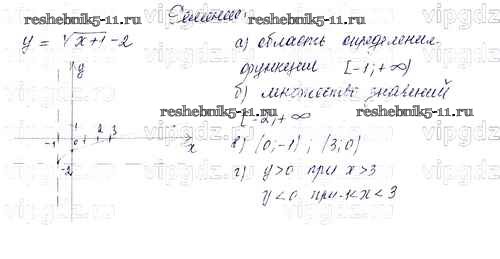 Решение:
y = √x+1 - 2
а) область определения
функции [-1; +∞)
б) множество значений
[-2; +∞
в) (0; -1) ; (3; 0)
г) y>0 при x>3
y<0 при -1<x<3
y
1
2 3
-1 0 x
-2
reshebnik5-11.ru
reshebnik5-11.ru
reshebnik5-11.ru
reshebnik5-11.ru
vipgdz.ru